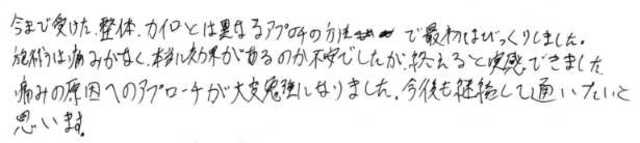 今まで受けた、整体、カイロとは異なるアプローチの方法で最初はびっくりしました。
施術は痛みがなく、本当に効果があるのか不安でしたが、終えると実感できました
痛みの原因へのアプローチが大変勉強になりました。今後も継続して通いたいと
思います。